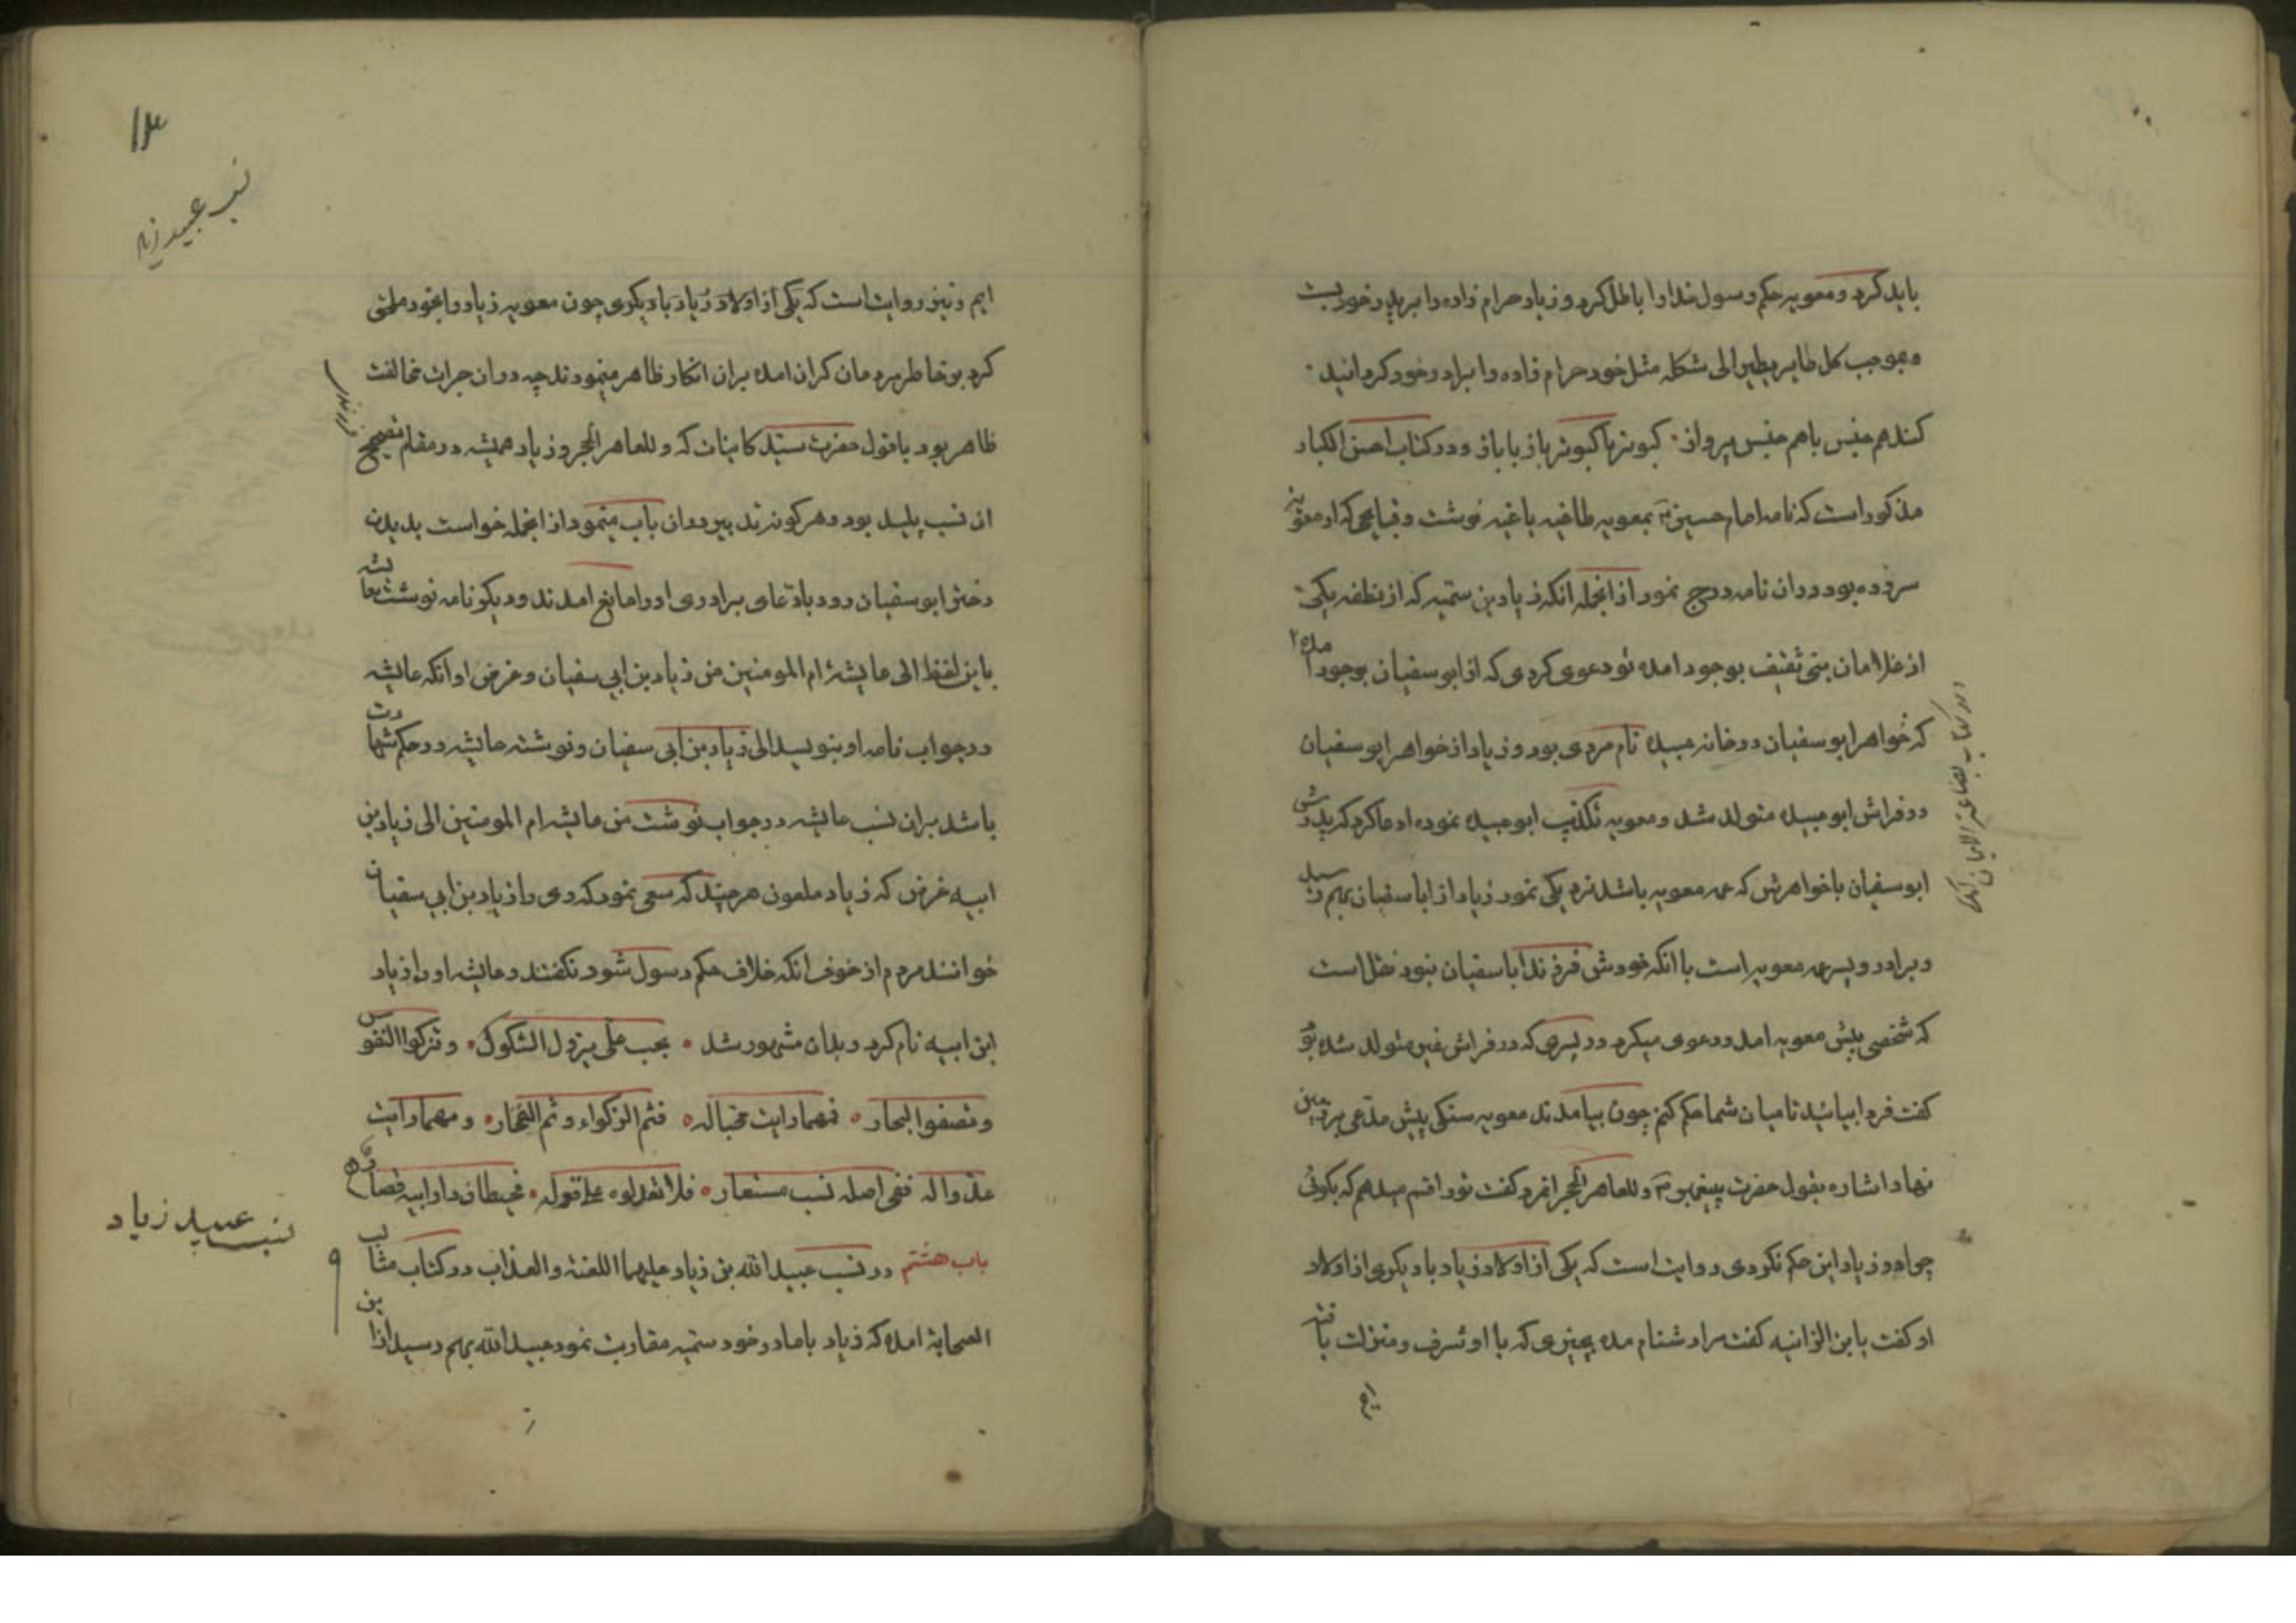 باید کرد و معویه حکم رسول خدا را باطل کرد و زیاد حرام زاده را بر پدر خود بست
و بموجب کل طایر یطیر الی شکله مثل خود حرام زاده را برادر خود کردانید
کند هم جنس با هم جنس پرواز کبوتر با کبوتر باز با باز و در کتاب احسن الکبار
مذکور است که نامه امام حسین بمعویه طاغیه باغیه نوشت و قبایحی که از معویه
سر زده بود در ان نامه درج نمود از انجمله انکه زیاد بن سمیه که از نطفه یکی
از غلامان بنی ثقیف بوجود امده تو دعوی کردی که از ابو سفیان بوجود امده
که خواهر ابو سفیان در خانه عبید نام مردی بود و زیاد از خواهر ابو سفیان
در فراش ابو عبیده متولد شد و معویه تکذیب ابو عبیده نموده ادعا کرد که پدرش
ابو سفیان با خواهرش که عمه معویه باشد نزدیکی نمود زیاد از ابا سفیان بهم رسید
و برادر و پسر عمه معویه است با انکه خودش فرزند ابا سفیان نبود نقل است
که شخصی پیش معویه امد و دعوی میکرد در پسری که در فراش غیر متولد شده بود
کفت فردا بیائید تا میان شما حکم کنم چون بیامدند معویه سنکی پیش مدعی بر زمین
نهاد اشاره بقول حضرت پیغمبر و للعاهر الحجر انمرد کفت تو را قسم میدهم که بکوئی
چرا در زیاد این حکم نکردی روایت است که یکی از اولاد زیاد با دیکری از اولاد
او کفت یا بن الزانیه کفت مرا دشنام مده بچیزی که با او شرف و منزلت یافته
ایم
در کتاب بضاعة
۱۳
نسب عبید زیاد
ایم و نیز روایت است که یکی از اولاد زیاد با دیکری چون معویه زیاد را بخود ملحق
کرد بر خاطر مردمان کران امده بران انکار ظاهر مینمودند چه در ان جرات مخالفت
ظاهر بود با قول حضرت سید کاینات که و للعاهر الحجر و زیاد همیشه در مقام تصحیح
ان نسب پلید بود و هر کونه تدبیر در ان باب مینمود از انجمله خواست بدیدن
دختر ابو سفیان رود بادعای برادری او را مانع امدند و دیکر نامه نوشت بعایشه
باین لفظ الی عایشه ام المومنین من زیاد بن ابی سفیان و غرض او انکه عایشه
در جواب نامه او بنویسد الی زیاد بن ابی سفیان و نوشته عایشه در حکم شهادت
باشد بران نسب عایشه در جواب نوشت من عایشه ام المومنین الی زیاد بن
ابیه غرض که زیاد ملعون هر چند که سعی نمود که وی را زیاد بن ابی سفیان
خوانند مردم از خوف انکه خلاف حکم رسول شود نکفتند و عایشه او را زیاد
ابن ابیه نام کرد و بدان مشهور شد بحب علی یزول الشکوک و تزکوا النفوس
و تصفوا البحار فمهما رایت محبا له فثم الزکواء و ثم الفخار و مهما رایت
عدوا له ففی اصله نسب مستعار فلا تعذلوه علی قوله فحیطان دار ابیه قصار
باب هشتم در نسب عبید الله بن زیاد علیهما اللعنة و العذاب در کتاب مثالب
الصحابه امده که زیاد با مادر خود سمیه مقاربت نمود عبید الله بهم رسید از این
نسب عبید زیاد
۹